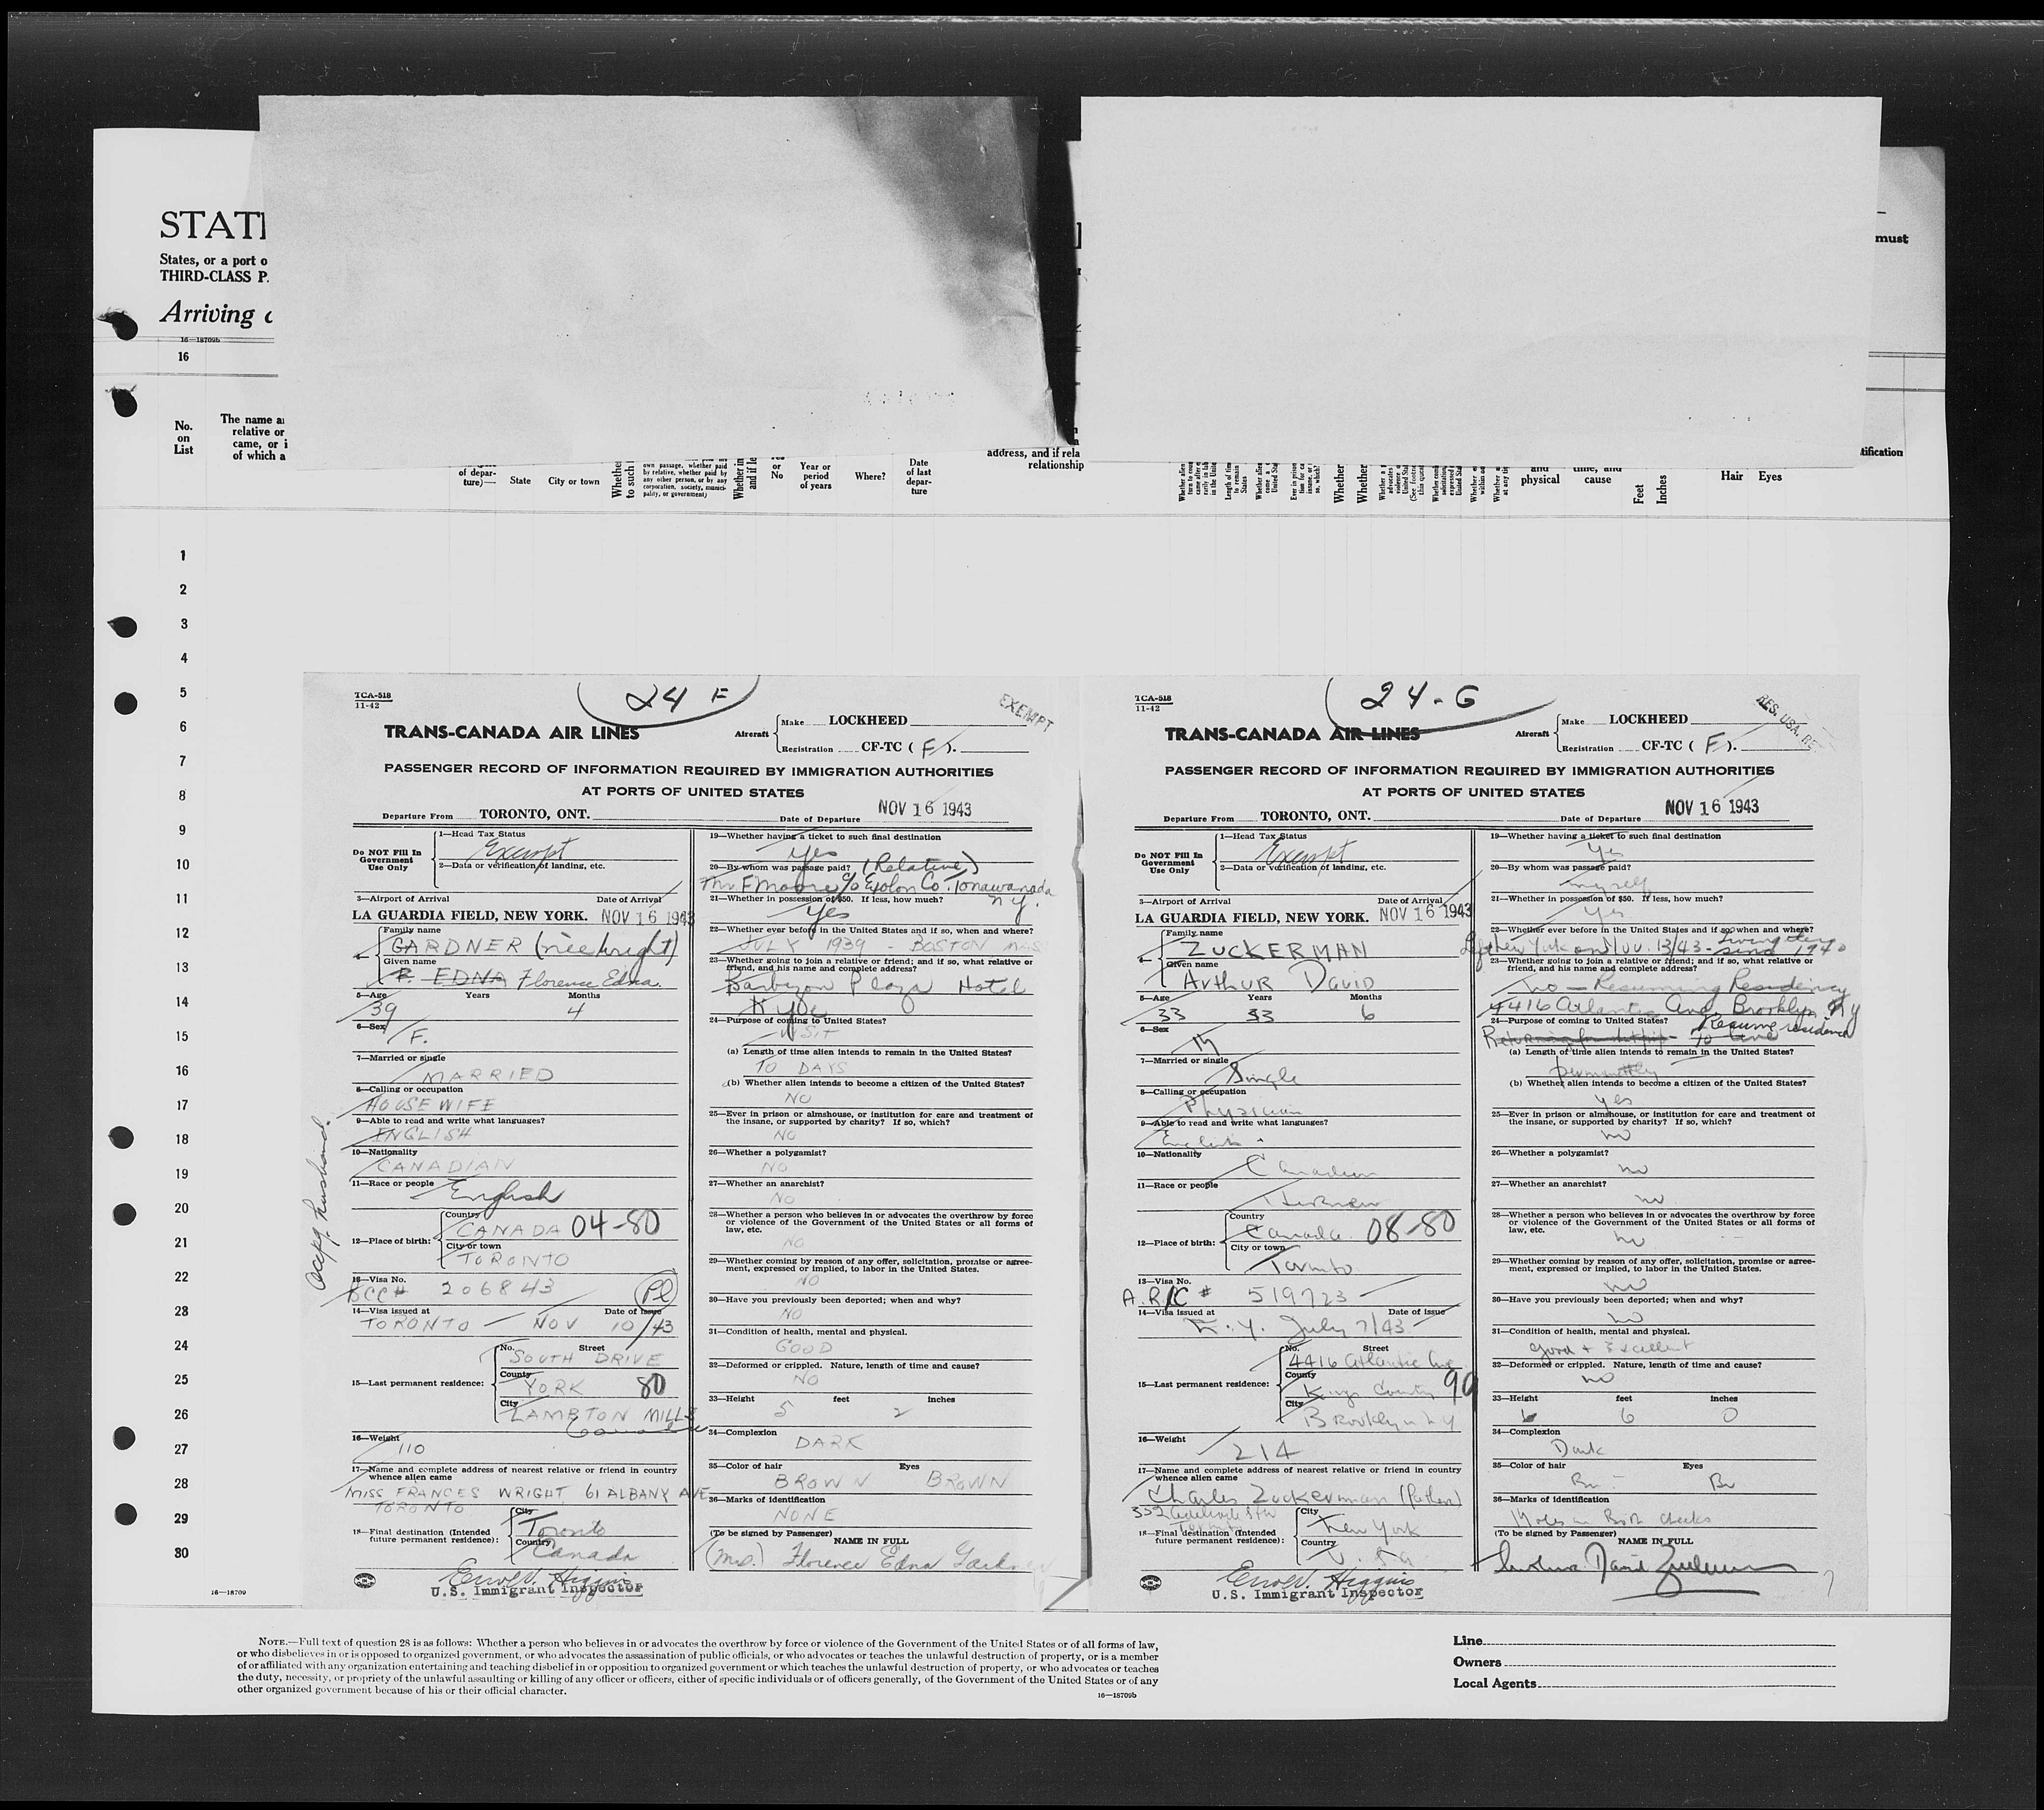 STATE
States, or a port o
THIRD-CLASS P.
Arriving
16—18709b
16
No.
on
List
The name a
relative or
came, or i
of which a
of depar-
ture)—
State
City or town
Whether
to such
own passage, whether paid
by relative, whether paid by
any other person, or by any
corporation, society, munici-
pality, or government)
Whether in
and if le
or
No
Year or
period
of years
Where?
Date
of last
depar-
ture
address, and if rela
relationship
must
tification
and
physical
time, and
cause
Feet
Inches
Hair
Eyes
1
2
3
4
5
6
7
8
9
10
11
12
13
14
15
16
17
18
19
20
21
22
23
24
25
26
27
28
29
30
16—18709
TCA-518
11-42
24 F
EXEMPT
TRANS-CANADA AIR LINES
Aircraft
Make LOCKHEED
Registration CF-TC ( F ).
PASSENGER RECORD OF INFORMATION REQUIRED BY IMMIGRATION AUTHORITIES
AT PORTS OF UNITED STATES
Departure From TORONTO, ONT. Date of Departure NOV 16 1943
Do NOT Fill In
Government
Use Only
1—Head Tax Status
Exempt
2—Data or verification of landing, etc.
3—Airport of Arrival Date of Arrival
LA GUARDIA FIELD, NEW YORK. NOV 16 1943
Family name
GARDNER (nee Wright)
Given name
F. EDNA Florence Edna.
5—Age Years Months
39 4
6—Sex
F.
7—Married or single
MARRIED
8—Calling or occupation
HOUSEWIFE
9—Able to read and write what languages?
ENGLISH
10—Nationality
CANADIAN
11—Race or people
English
12—Place of birth:
Country
CANADA 04-80
City or town
TORONTO
13—Visa No.
BCC# 206843
14—Visa issued at Date of issue
TORONTO — NOV 10/43
15—Last permanent residence:
No. Street
SOUTH DRIVE
County
YORK 80
City
LAMBTON MILLS
Canada
16—Weight
110
17—Name and complete address of nearest relative or friend in country
whence alien came
MISS FRANCES WRIGHT 61 ALBANY AVE
TORONTO
18—Final destination (Intended
future permanent residence):
City
Toronto
Country
Canada
Errol V. Higgins
U.S. Immigrant Inspector
accpg. husband.
19—Whether having a ticket to such final destination
Yes
20—By whom was passage paid? (Relative)
Mr. F Moore c/o Exolon Co. Tonawanada
N.Y.
21—Whether in possession of $50. If less, how much?
Yes
22—Whether ever before in the United States and if so, when and where?
JULY 1939 - BOSTON MASS
23—Whether going to join a relative or friend; and if so, what relative or
friend, and his name and complete address?
Barbizon Plaza Hotel
NYC
24—Purpose of coming to United States?
VISIT
(a) Length of time alien intends to remain in the United States?
10 DAYS
(b) Whether alien intends to become a citizen of the United States?
NO
25—Ever in prison or almshouse, or institution for care and treatment of
the insane, or supported by charity? If so, which?
NO
26—Whether a polygamist?
NO
27—Whether an anarchist?
NO
28—Whether a person who believes in or advocates the overthrow by force
or violence of the Government of the United States or all forms of
law, etc.
NO
29—Whether coming by reason of any offer, solicitation, promise or agree-
ment, expressed or implied, to labor in the United States.
NO
30—Have you previously been deported; when and why?
NO
31—Condition of health, mental and physical.
GOOD
32—Deformed or crippled. Nature, length of time and cause?
NO
33—Height feet inches
5 2
34—Complexion
DARK
35—Color of hair Eyes
BROWN BROWN
36—Marks of identification
NONE
(To be signed by Passenger) NAME IN FULL
(Mrs.) Florence Edna Gardner
TCA-518
11-42
24-G
RES. USA. RE
TRANS-CANADA AIR LINES
Aircraft
Make LOCKHEED
Registration CF-TC ( F ).
PASSENGER RECORD OF INFORMATION REQUIRED BY IMMIGRATION AUTHORITIES
AT PORTS OF UNITED STATES
Departure From TORONTO, ONT. Date of Departure NOV 16 1943
Do NOT Fill In
Government
Use Only
1—Head Tax Status
Exempt
2—Data or verification of landing, etc.
3—Airport of Arrival Date of Arrival
LA GUARDIA FIELD, NEW YORK. NOV 16 1943
Family name
ZUCKERMAN
Given name
Arthur David
5—Age Years Months
33 33 6
6—Sex
M
7—Married or single
Single
8—Calling or occupation
Physician
9—Able to read and write what languages?
English
10—Nationality
Canadian
11—Race or people
Hebrew
12—Place of birth:
Country
Canada 08-80
City or town
Toronto
13—Visa No.
A.R.C # 519723
14—Visa issued at Date of issue
N.Y. July 7/43
15—Last permanent residence:
No. Street
4416 Atlantic Ave
County
Kings County 99
City
Brooklyn N Y
16—Weight
214
17—Name and complete address of nearest relative or friend in country
whence alien came
Charles Zuckerman (father)
352 Adelaide St W
Toronto
18—Final destination (Intended
future permanent residence):
City
New York
Country
U.S.A
Errol V. Higgins
U.S. Immigrant Inspector
19—Whether having a ticket to such final destination
Yes
20—By whom was passage paid?
myself
21—Whether in possession of $50. If less, how much?
Yes
22—Whether ever before in the United States and if so, when and where?
Left New York on Nov. 13/43 - living there since 1940
23—Whether going to join a relative or friend; and if so, what relative or
friend, and his name and complete address?
No — Resuming Residency
4416 Atlantic Ave, Brooklyn NY
24—Purpose of coming to United States? Resume residence
to live
(a) Length of time alien intends to remain in the United States?
permanently
(b) Whether alien intends to become a citizen of the United States?
yes
25—Ever in prison or almshouse, or institution for care and treatment of
the insane, or supported by charity? If so, which?
no
26—Whether a polygamist?
no
27—Whether an anarchist?
no
28—Whether a person who believes in or advocates the overthrow by force
or violence of the Government of the United States or all forms of
law, etc.
no
29—Whether coming by reason of any offer, solicitation, promise or agree-
ment, expressed or implied, to labor in the United States.
no
30—Have you previously been deported; when and why?
no
31—Condition of health, mental and physical.
good + Excellent
32—Deformed or crippled. Nature, length of time and cause?
no
33—Height feet inches
6 6 0
34—Complexion
Dark
35—Color of hair Eyes
Br. Br
36—Marks of identification
Moles on Both cheeks
(To be signed by Passenger) NAME IN FULL
Arthur David Zuckerman
NOTE.—Full text of question 28 is as follows: Whether a person who believes in or advocates the overthrow by force or violence of the Government of the United States or of all forms of law,
or who disbelieves in or is opposed to organized government, or who advocates the assassination of public officials, or who advocates or teaches the unlawful destruction of property, or is a member
of or affiliated with any organization entertaining and teaching disbelief in or opposition to organized government or which teaches the unlawful destruction of property, or who advocates or teaches
the duty, necessity, or propriety of the unlawful assaulting or killing of any officer or officers, either of specific individuals or of officers generally, of the Government of the United States or of any
other organized government because of his or their official character.
16—18709b
Line
Owners
Local Agents